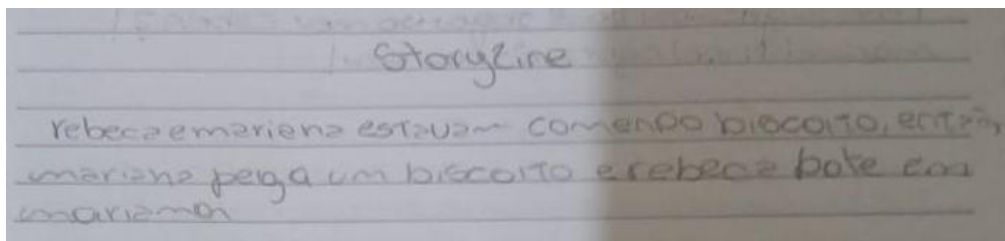 Storyline
rebeca e mariana estavam comendo biscoito, então,
mariana pega um biscoito e rebeca bate em
mariana